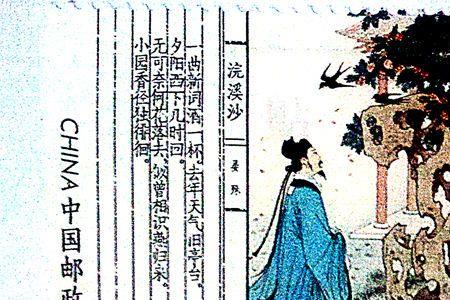 浣溪沙
晏殊
一曲新词酒一杯，去年天气旧亭台。
夕阳西下几时回。
无可奈何花落去，似曾相识燕归来。
小园香径独徘徊。
CHINA 中国邮政